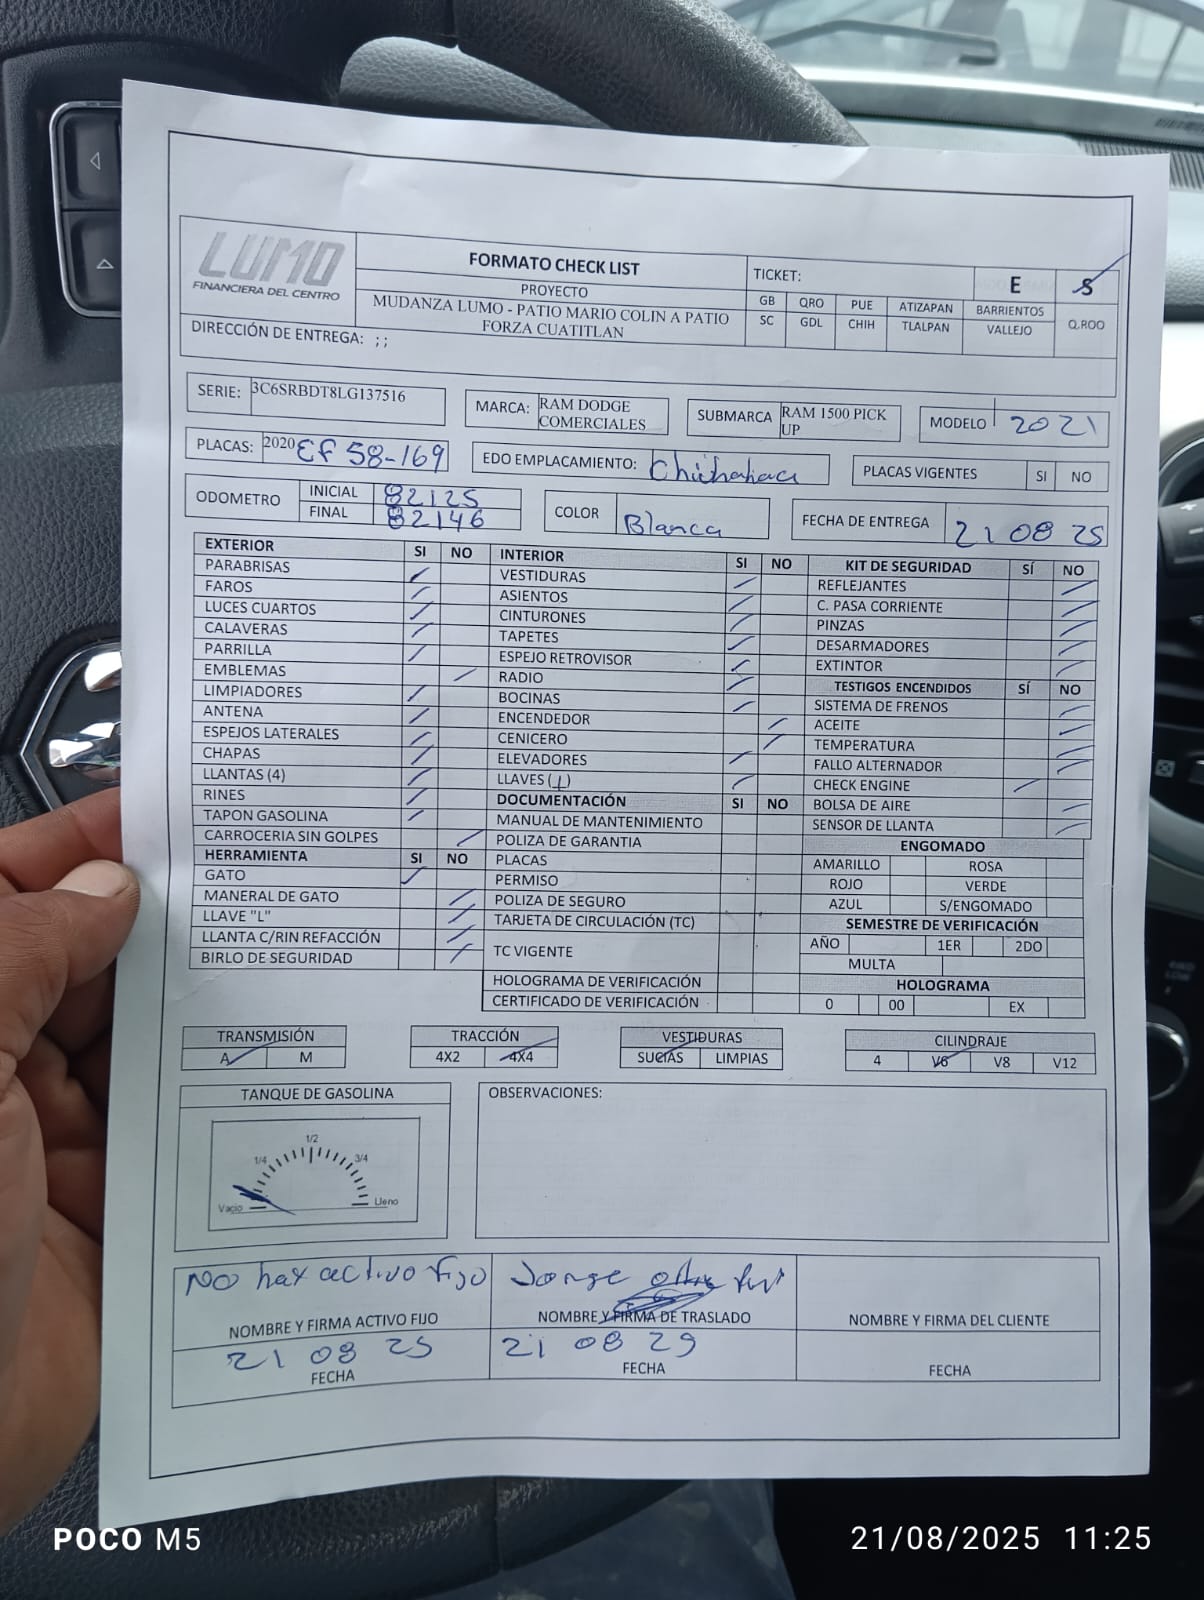 LUMO
FINANCIERA DEL CENTRO
FORMATO CHECK LIST
PROYECTO
MUDANZA LUMO - PATIO MARIO COLIN A PATIO
FORZA CUATITLAN
TICKET:
E
S
GB QRO PUE ATIZAPAN BARRIENTOS
SC GDL CHIH TLALPAN VALLEJO Q.ROO
DIRECCIÓN DE ENTREGA: ; ;
SERIE: 3C6SRBDT8LG137516
MARCA: RAM DODGE
COMERCIALES
SUBMARCA RAM 1500 PICK
UP
MODELO 2021
PLACAS: 2020 EF 58-169
EDO EMPLACAMIENTO:
PLACAS VIGENTES SI NO
ODOMETRO INICIAL 82125
FINAL 82146
COLOR Blanca
FECHA DE ENTREGA 21 08 25
EXTERIOR SI NO
PARABRISAS
FAROS
LUCES CUARTOS
CALAVERAS
PARRILLA
EMBLEMAS
LIMPIADORES
ANTENA
ESPEJOS LATERALES
CHAPAS
LLANTAS (4)
RINES
TAPON GASOLINA
CARROCERIA SIN GOLPES
HERRAMIENTA SI NO
GATO
MANERAL DE GATO
LLAVE "L"
LLANTA C/RIN REFACCIÓN
BIRLO DE SEGURIDAD
INTERIOR SI NO
VESTIDURAS
ASIENTOS
CINTURONES
TAPETES
ESPEJO RETROVISOR
RADIO
BOCINAS
ENCENDEDOR
CENICERO
ELEVADORES
LLAVES (1)
DOCUMENTACIÓN SI NO
MANUAL DE MANTENIMIENTO
POLIZA DE GARANTIA
PLACAS
PERMISO
POLIZA DE SEGURO
TARJETA DE CIRCULACIÓN (TC)
TC VIGENTE
HOLOGRAMA DE VERIFICACIÓN
CERTIFICADO DE VERIFICACIÓN
KIT DE SEGURIDAD SÍ NO
REFLEJANTES
C. PASA CORRIENTE
PINZAS
DESARMADORES
EXTINTOR
TESTIGOS ENCENDIDOS SÍ NO
SISTEMA DE FRENOS
ACEITE
TEMPERATURA
FALLO ALTERNADOR
CHECK ENGINE
BOLSA DE AIRE
SENSOR DE LLANTA
ENGOMADO
AMARILLO ROSA
ROJO VERDE
AZUL S/ENGOMADO
SEMESTRE DE VERIFICACIÓN
AÑO 1ER 2DO
MULTA
HOLOGRAMA
0 00 EX
TRANSMISIÓN
A M
TRACCIÓN
4X2 4X4
VESTIDURAS
SUCIAS LIMPIAS
CILINDRAJE
4 V6 V8 V12
TANQUE DE GASOLINA
1/2
1/4 3/4
Vacio Lleno
OBSERVACIONES:
No hay activo fijo
NOMBRE Y FIRMA ACTIVO FIJO
21 08 25
FECHA
Jorge
NOMBRE Y FIRMA DE TRASLADO
21 08 25
FECHA
NOMBRE Y FIRMA DEL CLIENTE
FECHA
POCO M5
21/08/2025 11:25